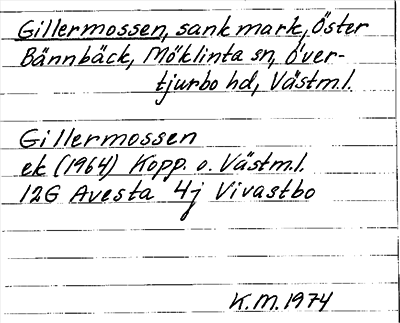 Gillermossen, sank mark, Öster
Bännbäck, Möklinta sn, Över-
tjurbo hd, Västm.l.
Gillermossen
ek (1964) Kopp. o. Västm.l.
12G Avesta 4j Vivastbo
K.M. 1974